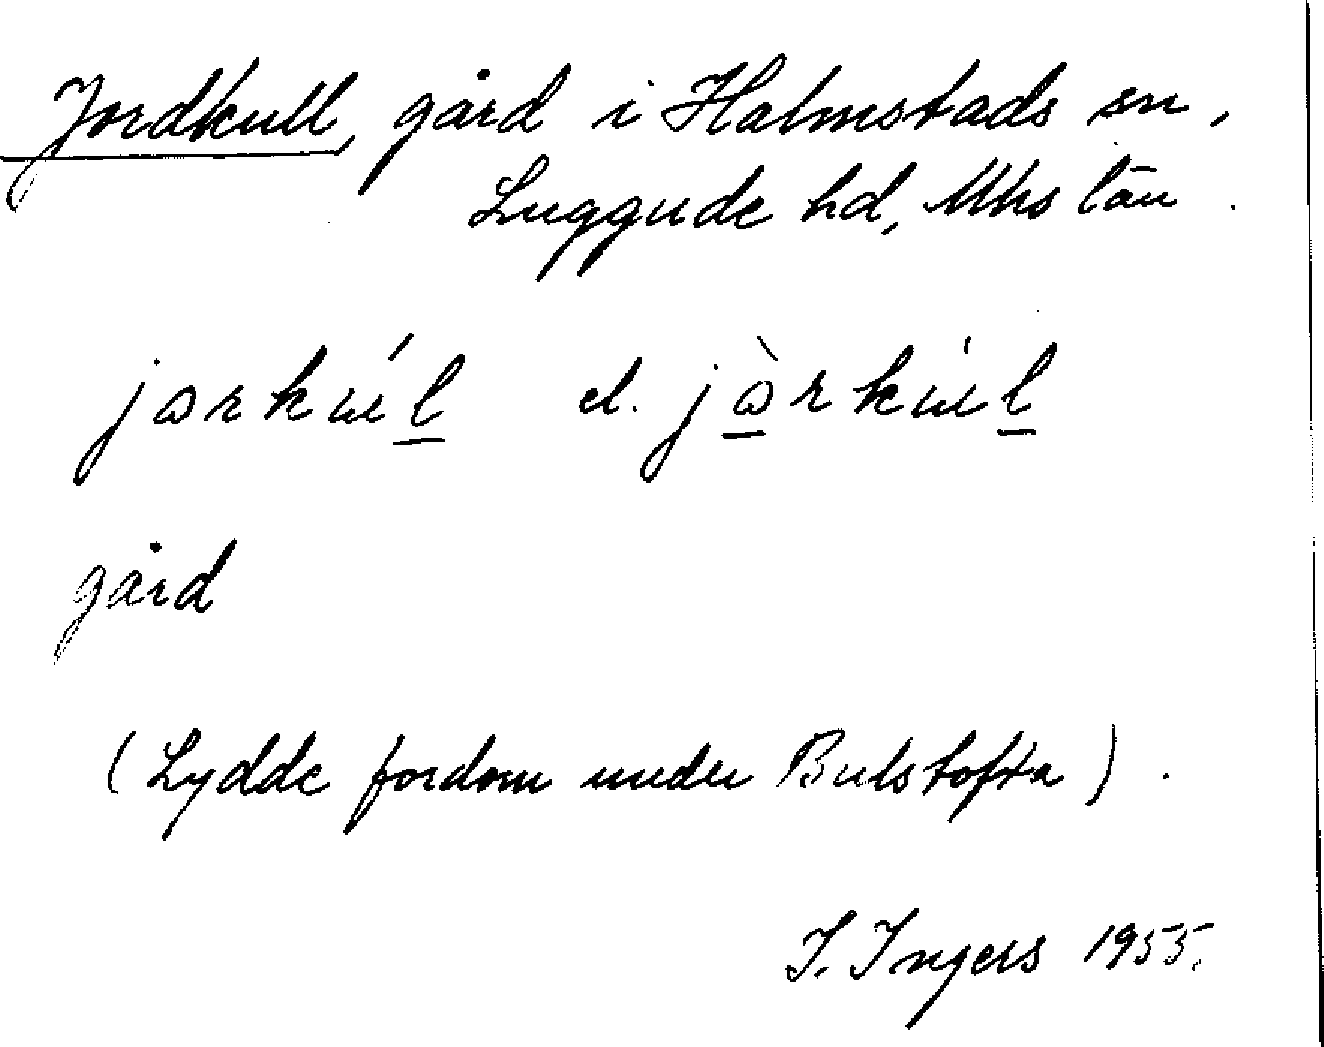 Jordkull, gård i Halmstads sn,
Luggude hd, Mhs län.
jɷrkúl el. jɷ̀rkùl
gård
(Lydde fordom under Bulstofta).
I. Ingers 1955.